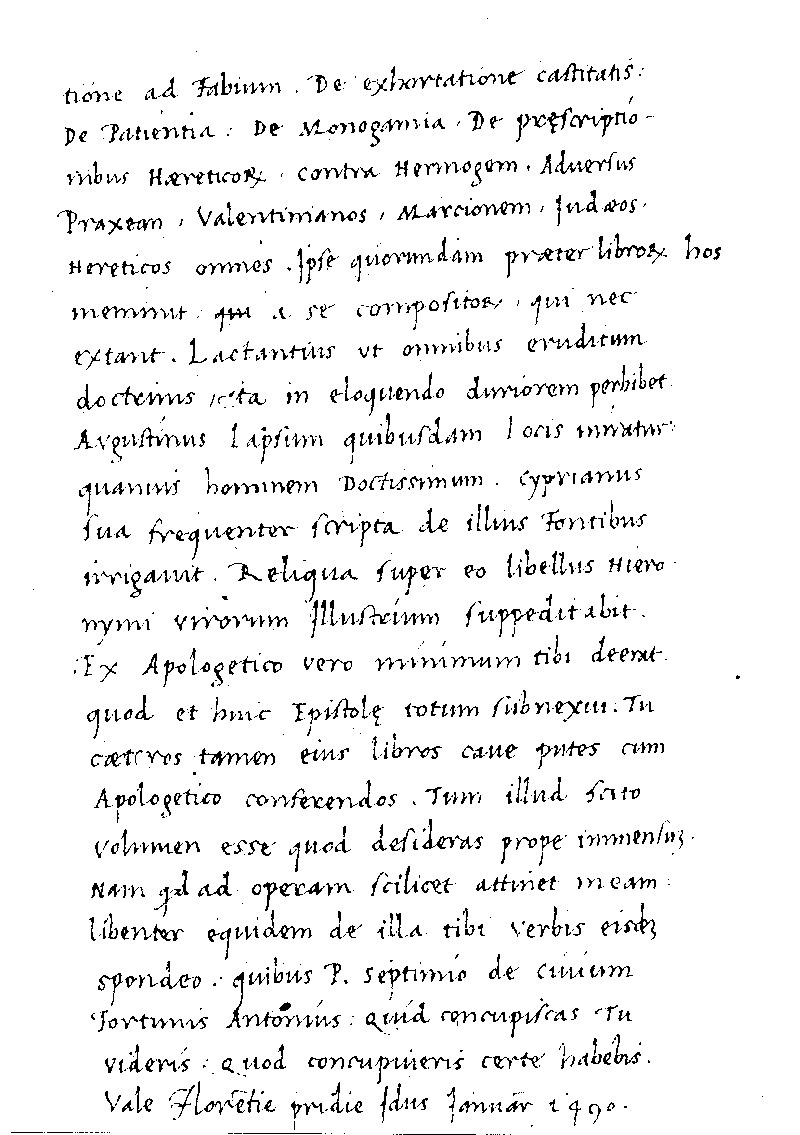 tione ad Fabium . De exhortatione castitatis :
De Patientia : De Monogamia . De pręscriptio-
nibus Hæreticoꝝ . contra Hermogem . Adversus
Praxean , Valentinianos , Marcionem , Judæos .
Hereticos omnes . Ipse quorundam præter libroꝝ hos
meminit a se compositoꝝ , qui nec
extant . Lactantius ut omnibus eruditum
doctrinis ita in eloquendo duriorem perhibet
Augustinus lapsum quibusdam locis miratur
quamvis hominem Doctissimum . Cyprianus
sua frequenter scripta de illius Fontibus
irrigauit . Reliqua super eo libellus Hiero
nymi virorum Illustrium suppeditabit .
Ex Apologetico vero minimum tibi deerat .
quod et huic Epistolę totum subnexui . Tu
cæteros tamen eius libros caue putes cum
Apologetico conferendos . Tum illud scito
volumen esse quod desideras prope immensuꝫ .
Nam qd ad operam scilicet attinet meam :
libenter equidem de illa tibi verbis eisdeꝫ
spondeo . quibus P. Septimio de civium
Fortunis Antonius : Quid concupiscas Tu
videris : Quod concupiueris certe habebis .
Vale Florētie pridie Idus Januar̄ 1490 .